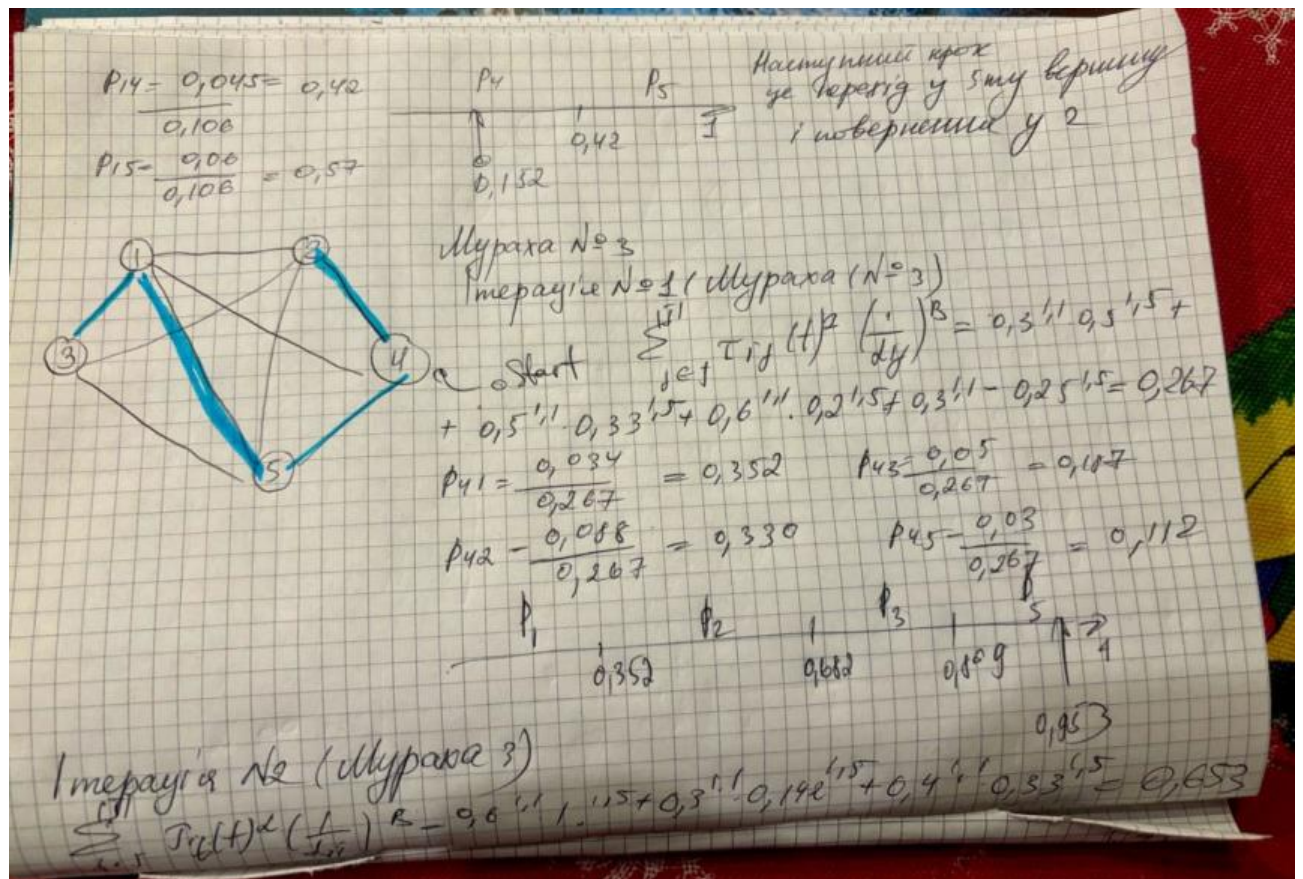 P14 = 0,045 / 0,106 = 0,42
P15 - 0,06 / 0,106 = 0,57
P4 P5
0,42 1
0,152
Наступний крок
це перехід у 5ту вершину
і повернення у 2
1 2 3 4 5
Start
Мураха №3
Ітерація №1 (Мураха (№3)
∑ τij (t)^α (1/dij)^B = 0,3^1,1 0,5^1,5 +
+ 0,5^1,1 · 0,33^1,5 + 0,6^1,1 · 0,2^1,5 + 0,3^1,1 - 0,25^1,5 = 0,267
P41 = 0,034 / 0,267 = 0,352 P43 = 0,05 / 0,267 = 0,187
P42 - 0,088 / 0,267 = 0,330 P45 - 0,03 / 0,267 = 0,112
P1 P2 P3 P5
0,352 0,682 0,869 1
0,953
Ітерація №2 (Мураха 3)
∑ (t)^α B - 0,6^1,1 1^1,5 + 0,3^1,1 0,142^1,5 + 0,4^1,1 0,33^1,5 = 0,653